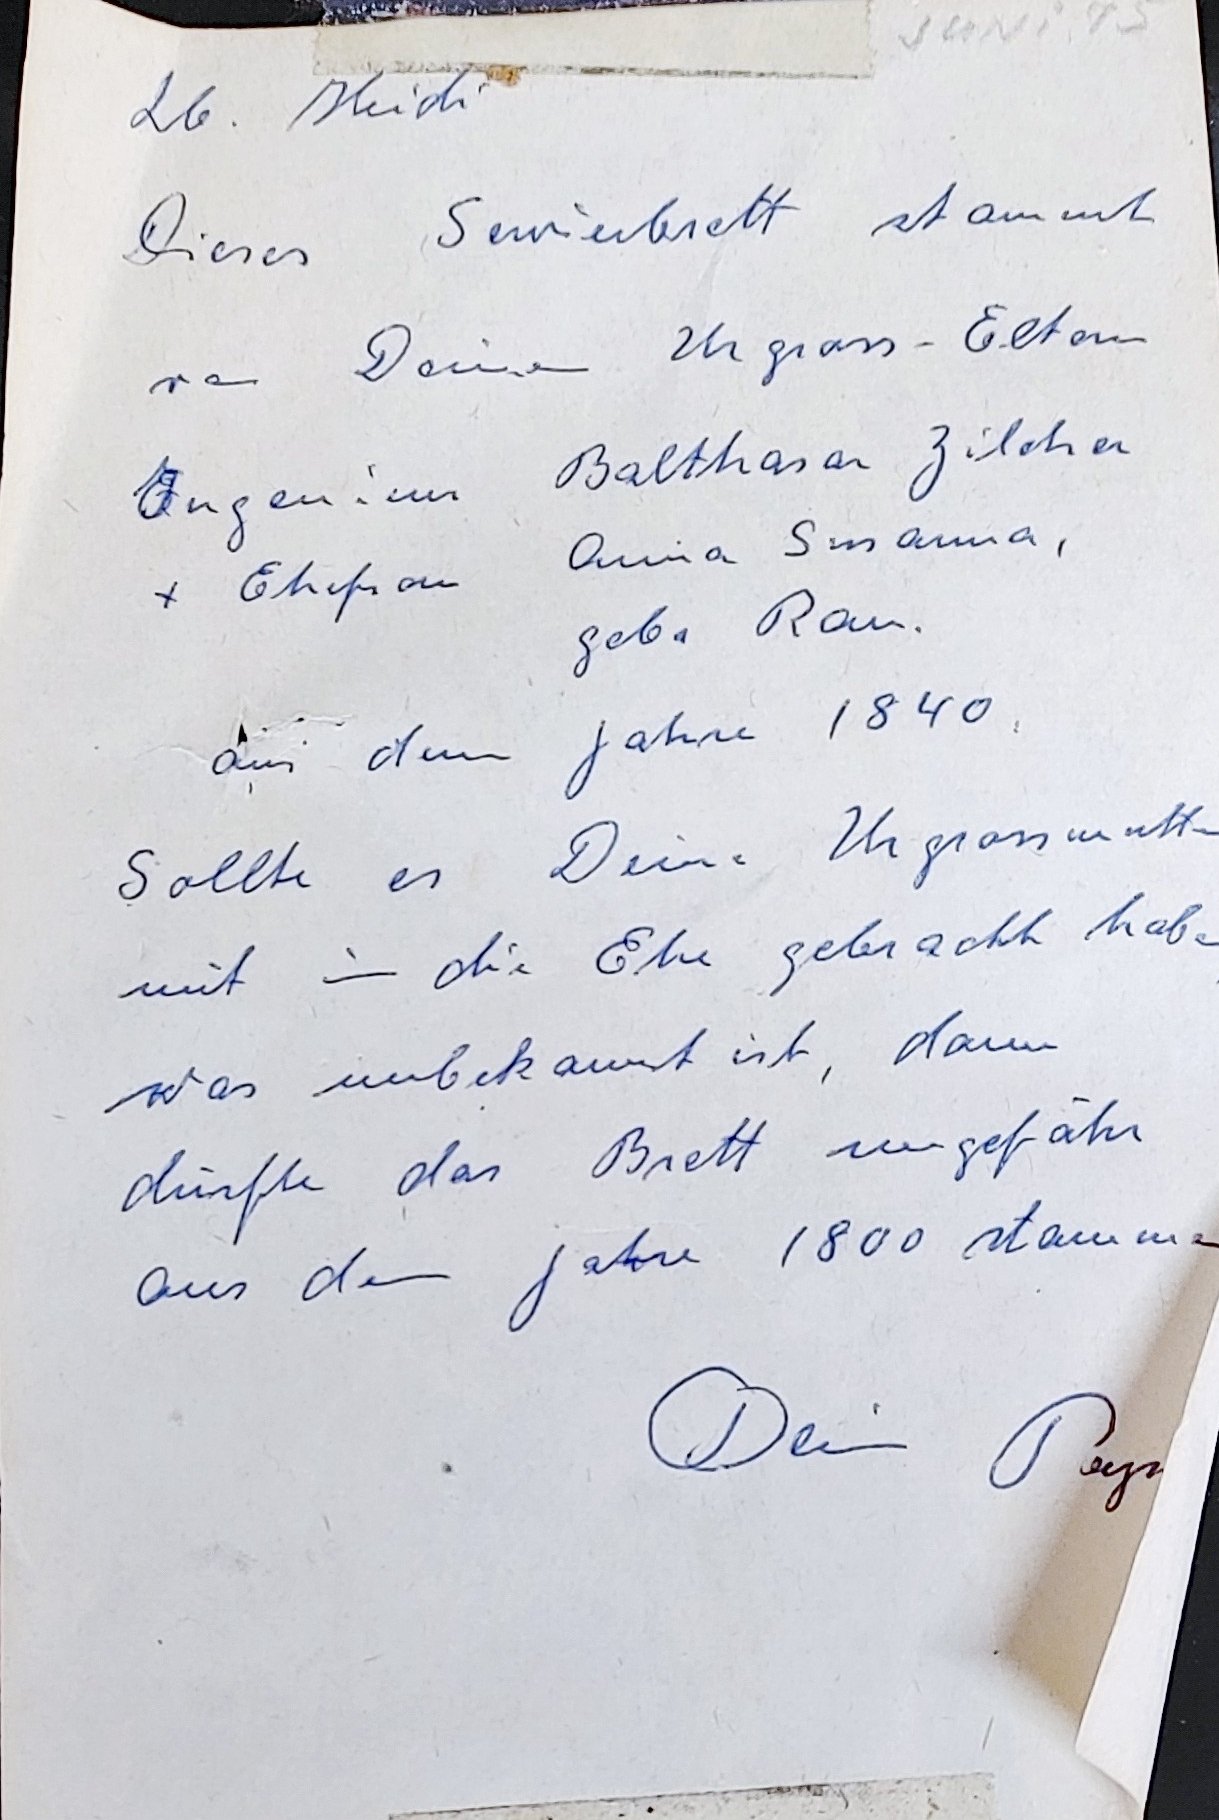 JUNI. 75
Lb. Heidi
Dieses Servierbrett stammt
von Deinen Urgross-Eltern
Eugenius Balthasar Zilcher
+ Ehefrau Anna Susanna,
geb. Rau.
aus dem Jahre 1840.
Sollte es Deine Urgrossmutter
mit in die Ehe gebracht haben
was unbekannt ist, dann
dürfte das Brett ungefähr
aus dem Jahre 1800 stammen
Dein